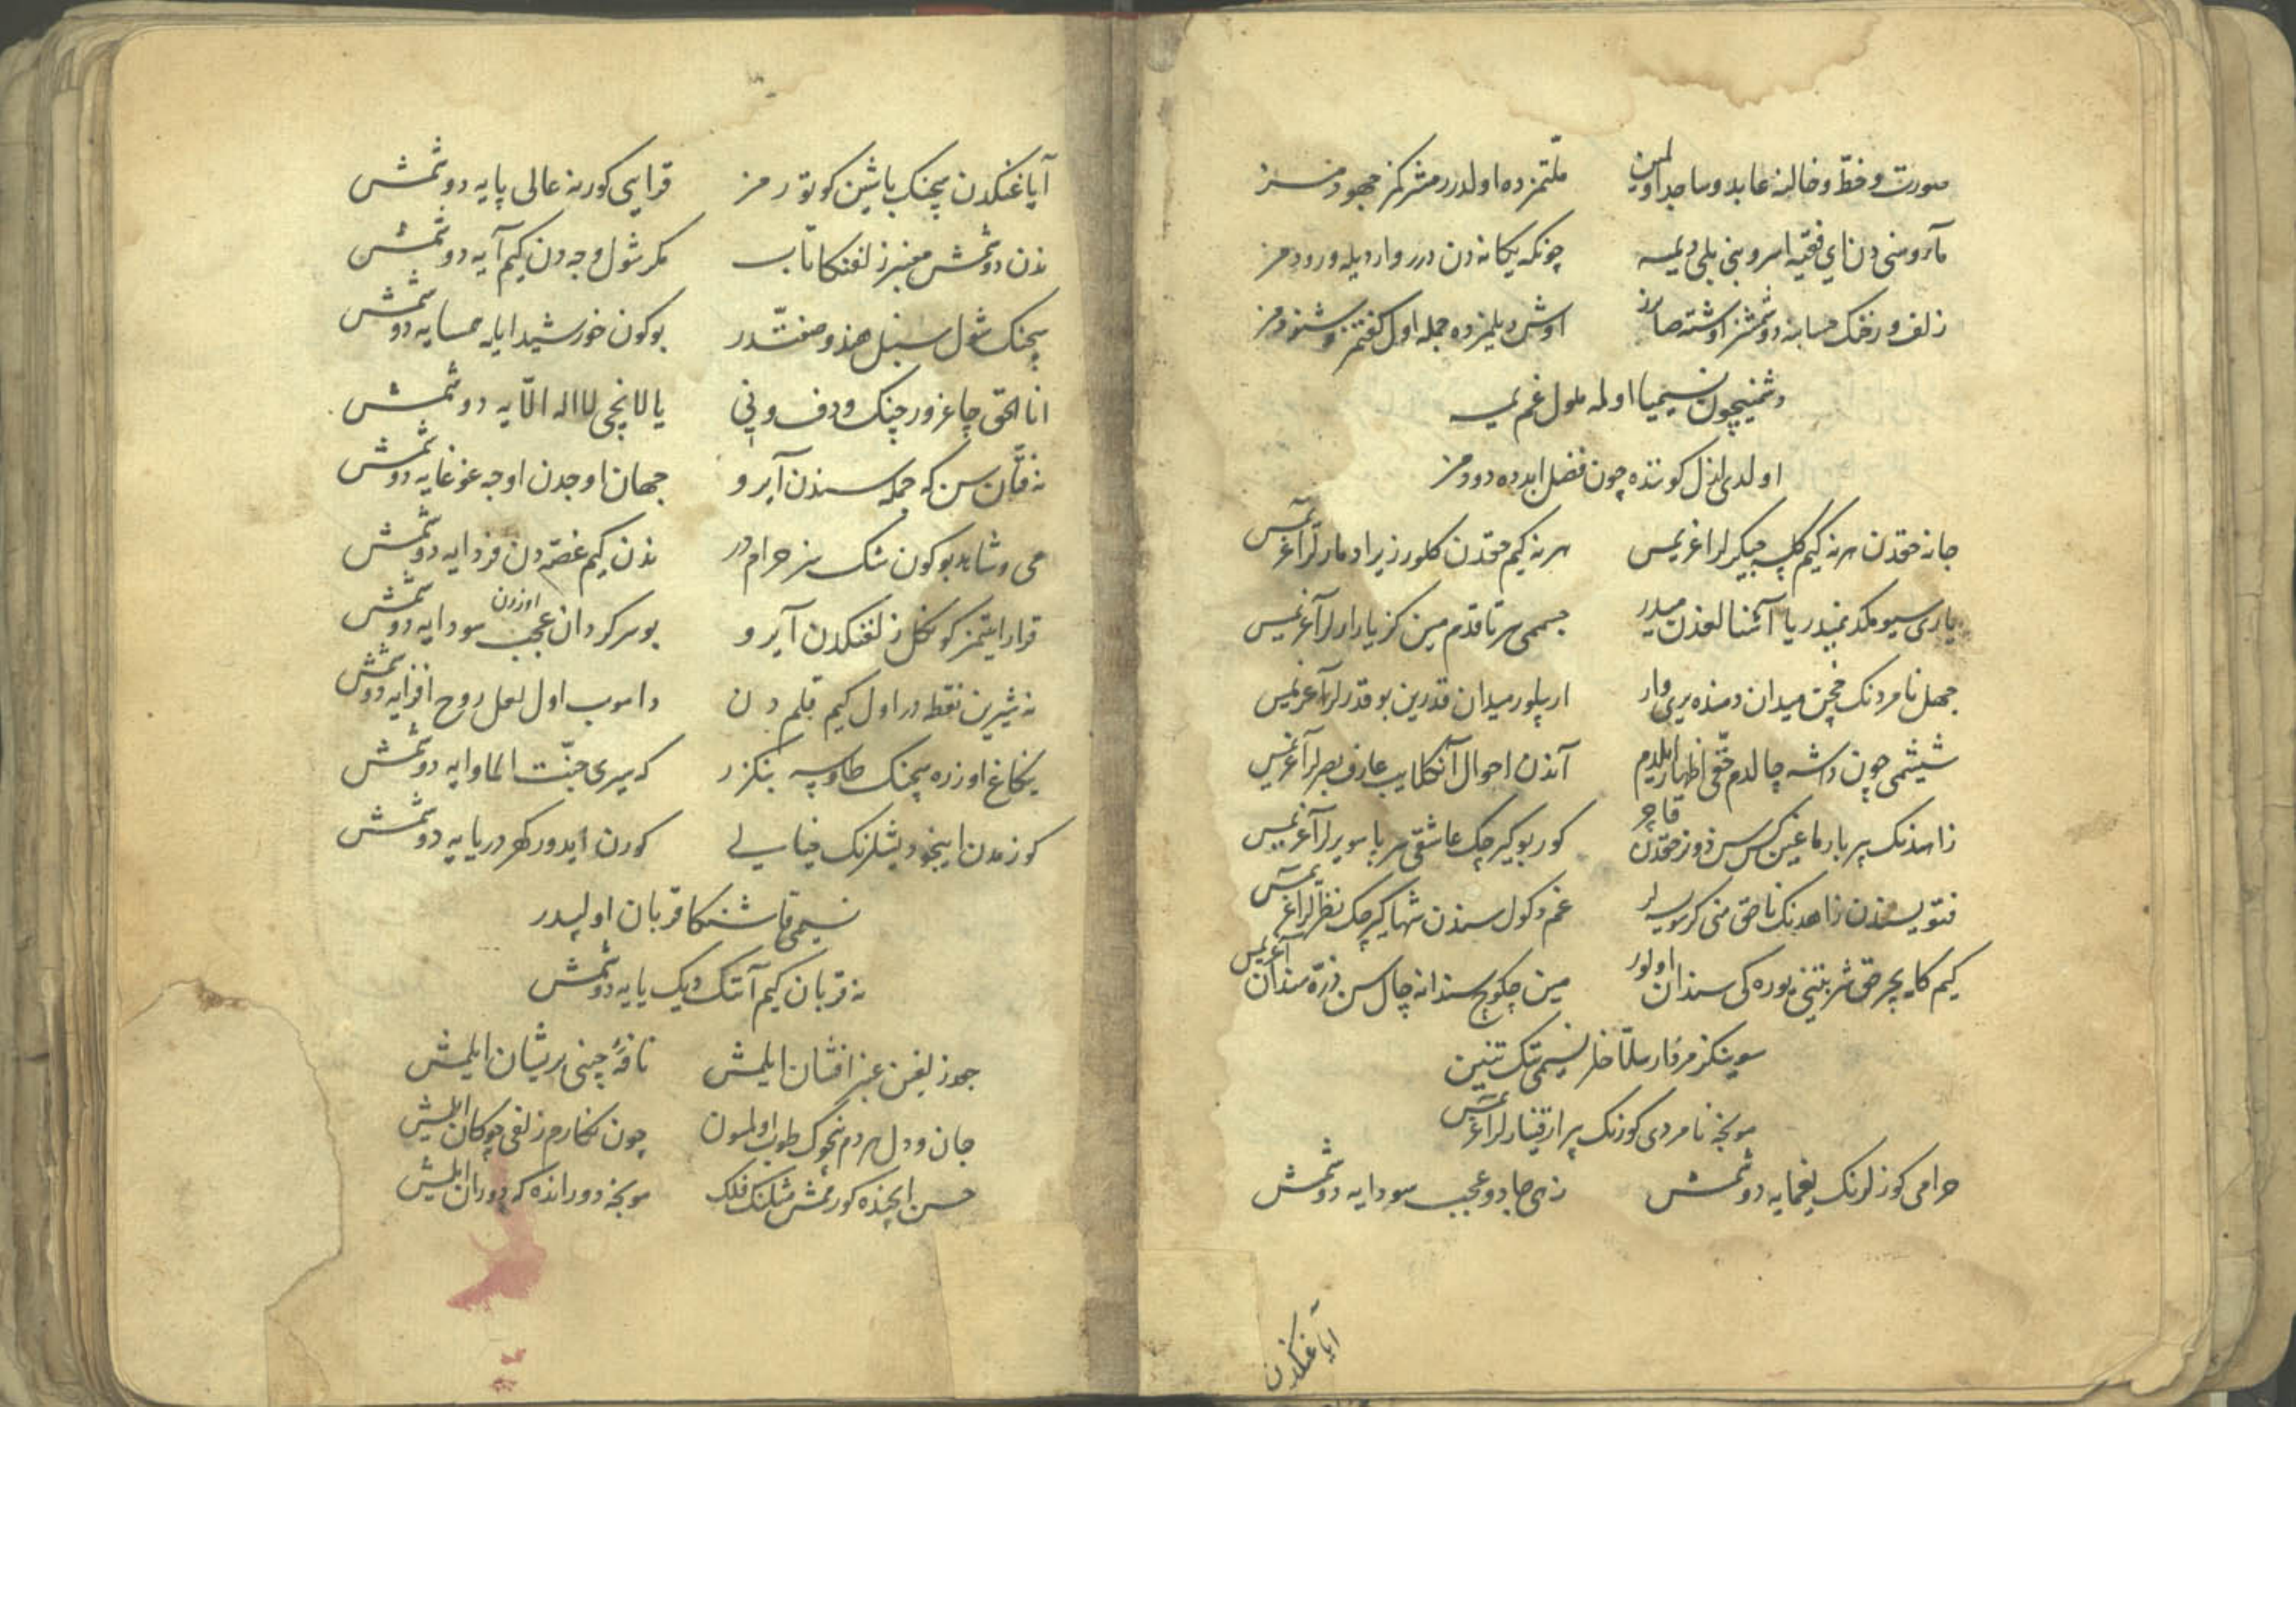 صورت و خطّ و خالنه عابد و ساجد اولمین ملّتمزده اولدرر مشرکمز جهودمز
مآء و منی دن ای فقیه امر و بنی بلی دیمه چونکه یکانه دن درر وارد یله ورودمز
زلف و رخنک حسابنه دوشمشز اوشته صایرز اوش دیلمزده جمله اول گفتمز و شنودمز
دشمنیچون نسیمیا اولمه ملول غم یمه
اولدی ازل کوننده چون فضل ابدده دودمز
جانه حقدن هرنه کیم کله جیکرلر اغریمس هرنه کیم حقدن کلور زیرا دمارلر آغریمس
یاری سیومکدنمیدر یا آشنالغذن میدر جسممی سر تا قدم مین کز یارارلر آغریمس
جهل نامردنک قچن میدان دمنده یری وار ار بیلور میدان قدرین بو قدرلر آغریمس
شیشمی چون داشه چالدم حقی اظهار ایلدم آندن احوال آنکلایب عارف بصرلر آغریمس
زاهدنک بیر بارماغین کس سن دونر حقدن قاچر کور بو کیرچک عاشقی سر پا سویرلر آغریمس
فتویسندن زاهدنک ناحق منی کر سویه لر غم دکول سندن شها کیرچک نظرلر اغریمس
کیم کا ایچر حق شربتنی بوره کی سندان اولور مین چکوچ سندانه چال سن ذرّه سندان آغریمس
سوینکز مردار سلّاخلر نسیمی تک تنین
مونجه نامردی کورنک بیر ار قینارلر اغریمس
حرامی کوزلرنک یغمایه دوشمش زهی جادو عجب سودایه دوشمش
ایاغنکدن
آیاغنکدن سچنک باشین کوتورمز قرایی کور نه عالی پایه دوشمش
ندن دوشمش معنبر زلفنکا تاب مکر شول وجه دن کیم آیه دوشمش
سچنک شول سنبل هندو صفتّدر بوکون خورشید ایله همسایه دوشمش
انا الحق چاغرور چنک و دف و نی یالانچی لا اله الّایه دوشمش
نه فتّان سن که جمله سندن آیرو جهان اوجدن اوجه غوغایه دوشمش
می و شاهد بوکون شک سز حرام در ندن کیم غصّه دن فردایه دوشمش
قرار ایتمز کونکل زلفنکدن آیرو بو سرکردان عجب اوزون سودایه دوشمش
نه شیرین نقطه در اول کیم قلم دن دامب اول لعل روح افزایه دوشمش
یکاغ اوزره سچنک طاوسه بنکزر که سیری جنّت الماوایه دوشمش
کوزمدن اینجو دیشلرنک خیالی کورن ایدور کهر دریایه دوشمش
نسیمی قاشنکا قربان اولیدر
نه قربان کیم آتنک دیک یایه دوشمش
جعد زلفین عنبر افشان ایلمش نافهٔ چینی پریشان ایلمش
جان و دل هر دم نجوک طوب اولمسون چون نکارم زلفی چوکان ایلمش
حسن ایچنده کورممش مثلنک فلک مونجه دورانده که دوران ایلمش